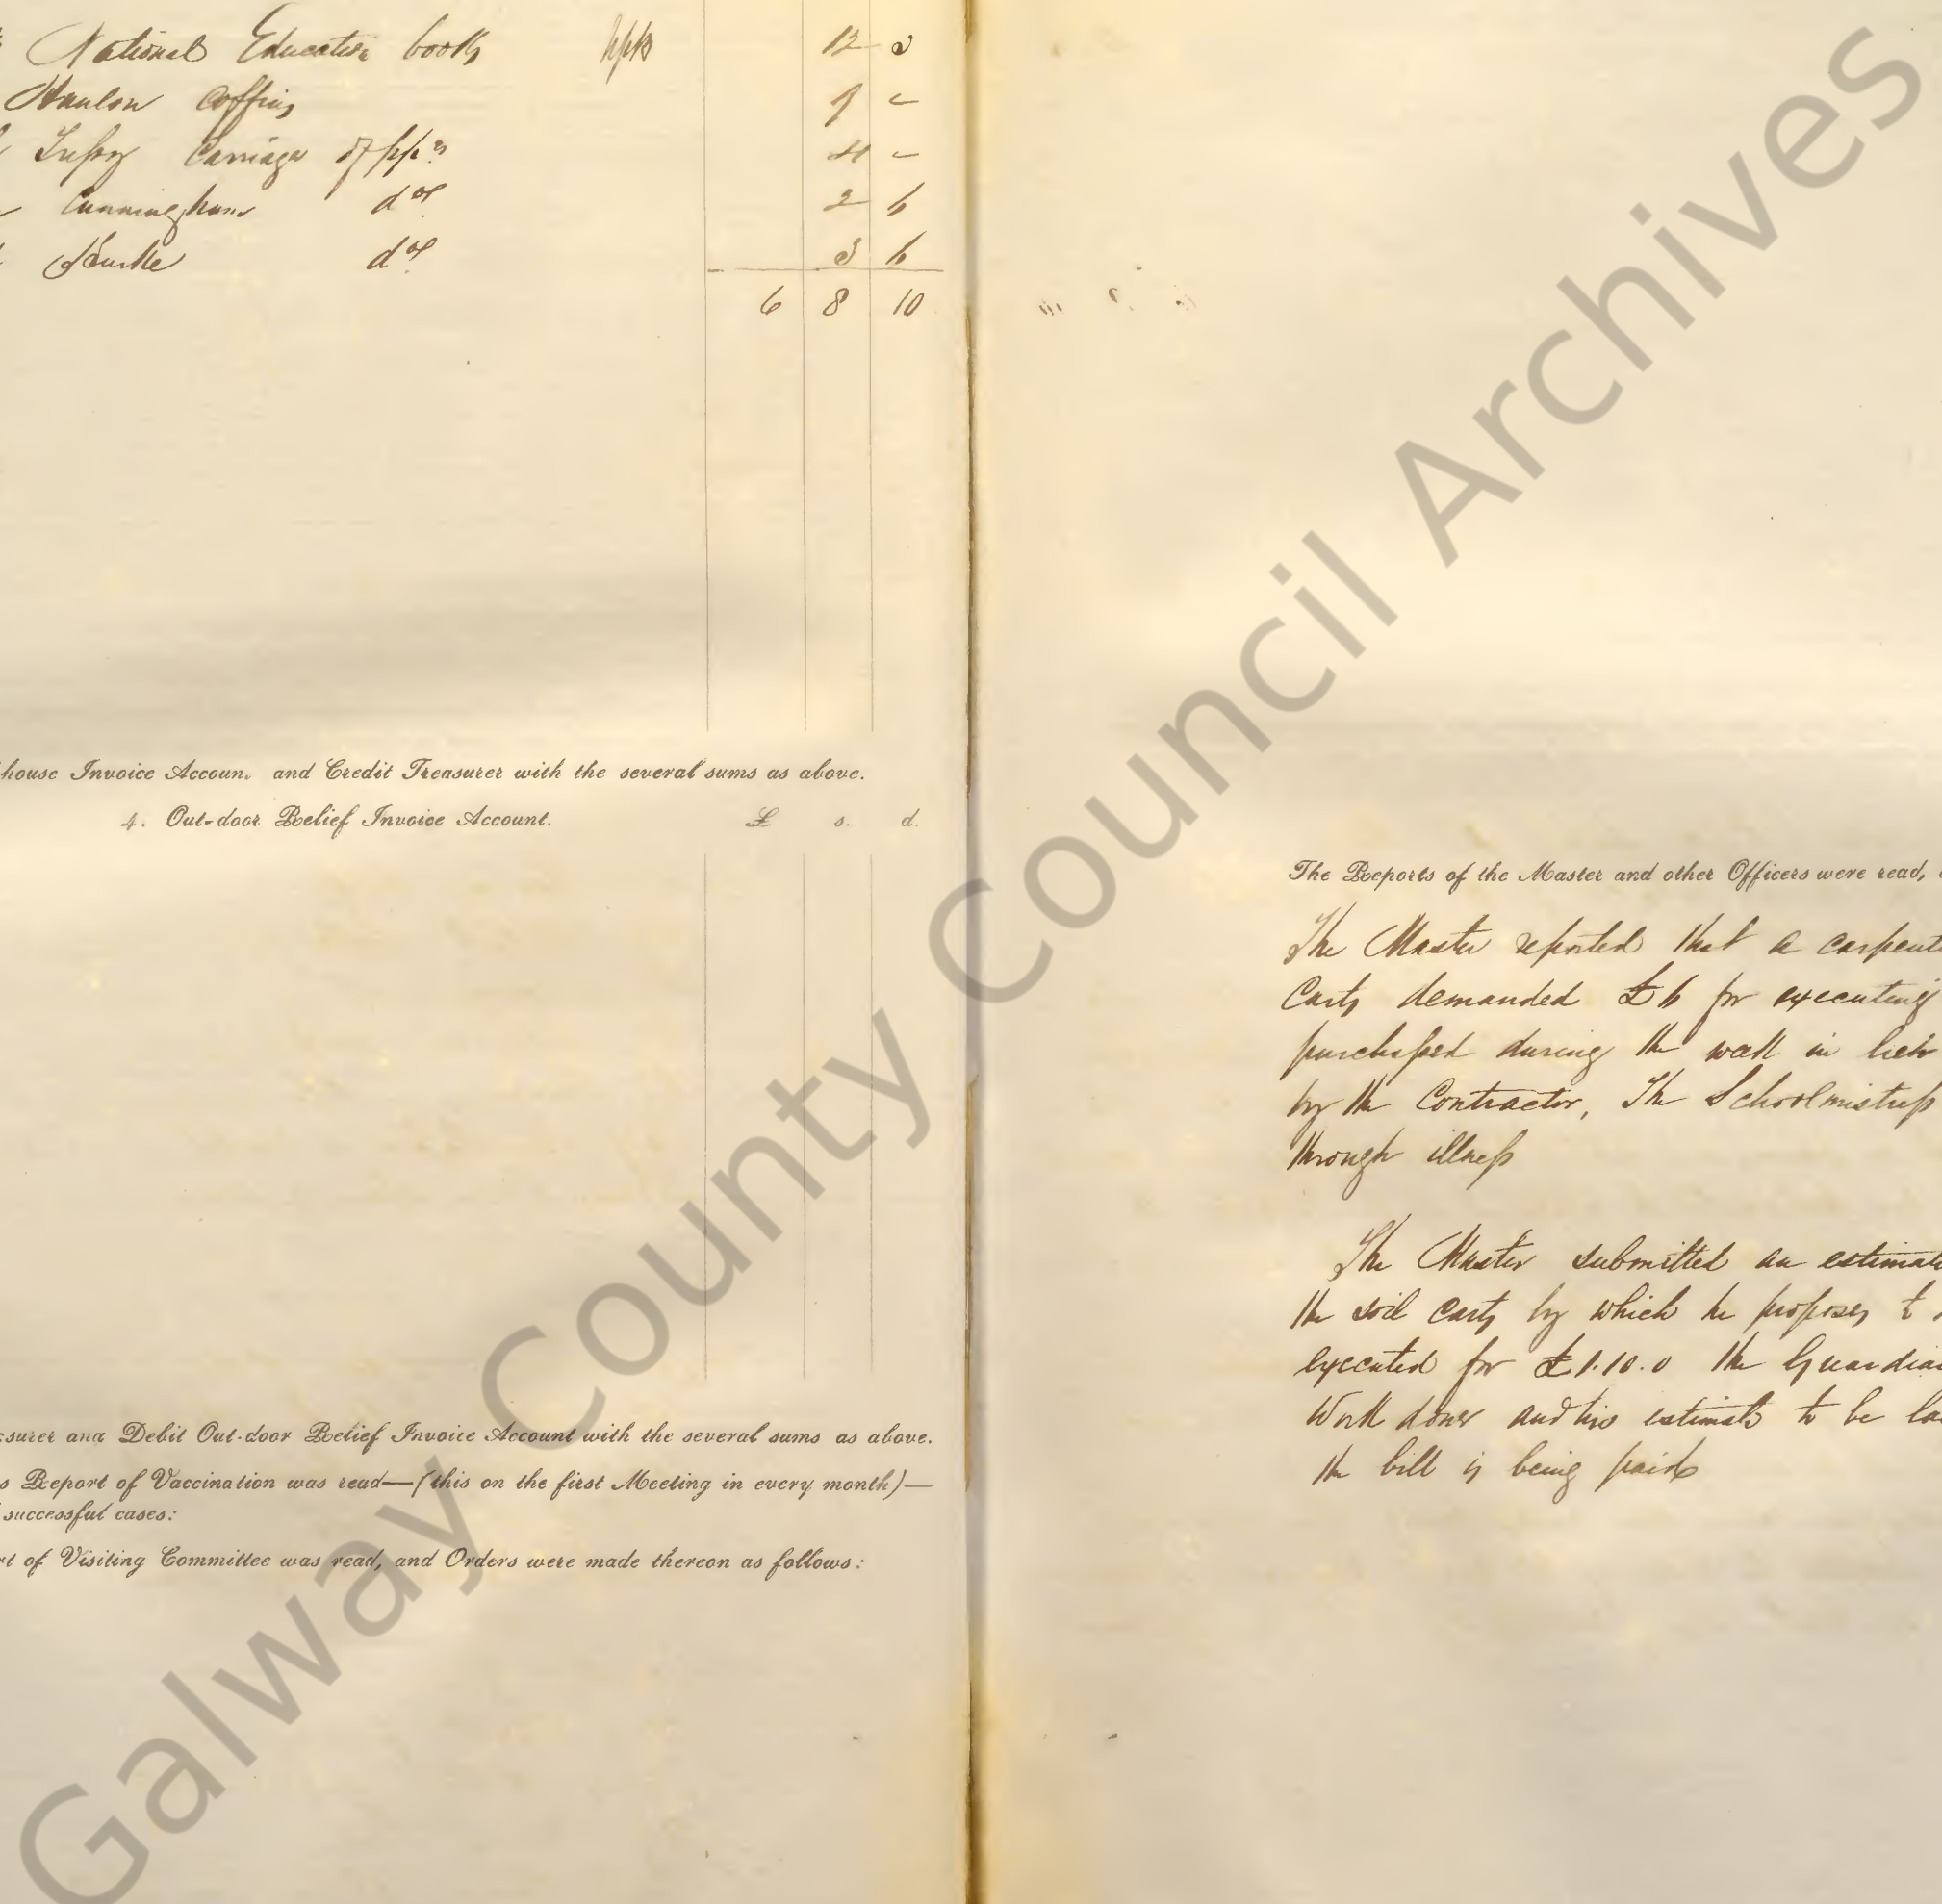 National Education books 12
Hanlon Coffins 9 -
Carriage of 4 -
Cunningham do 2 6
Bourke do 3 6
6 8 10
house Invoice Accoun. and Credit Treasurer with the several sums as above.
4. Out-door Relief Invoice Account. £ s. d.
surer and Debit Out-door Relief Invoice Account with the several sums as above.
s Report of Vaccination was read—(this on the first Meeting in every month)—
successful cases:
rt of Visiting Committee was read, and Orders were made thereon as follows:
The Reports of the Master and other Officers were read,
The Master reported that a carpent
Carts demanded £6 for executing
purchased during the week in lieu
by the Contractor, The Schoolmistress
through illness
The Master submitted an estimate
the soil carts by which he proposes to
executed for £1.10.0 the Guardia
Work done and his estimate to be
the bill is being paid
Galway County Council Archives